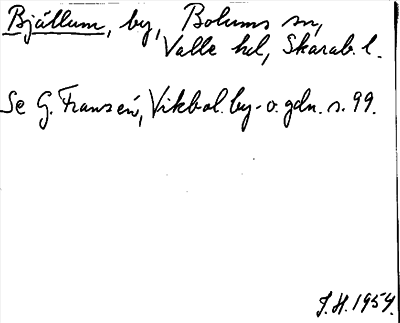 Bjällum, by, Bolums sn,
Valle hd, Skarab. l.
Se G. Franzén, Vikbol. by- o. gdn. s. 99.
J.H. 1954.